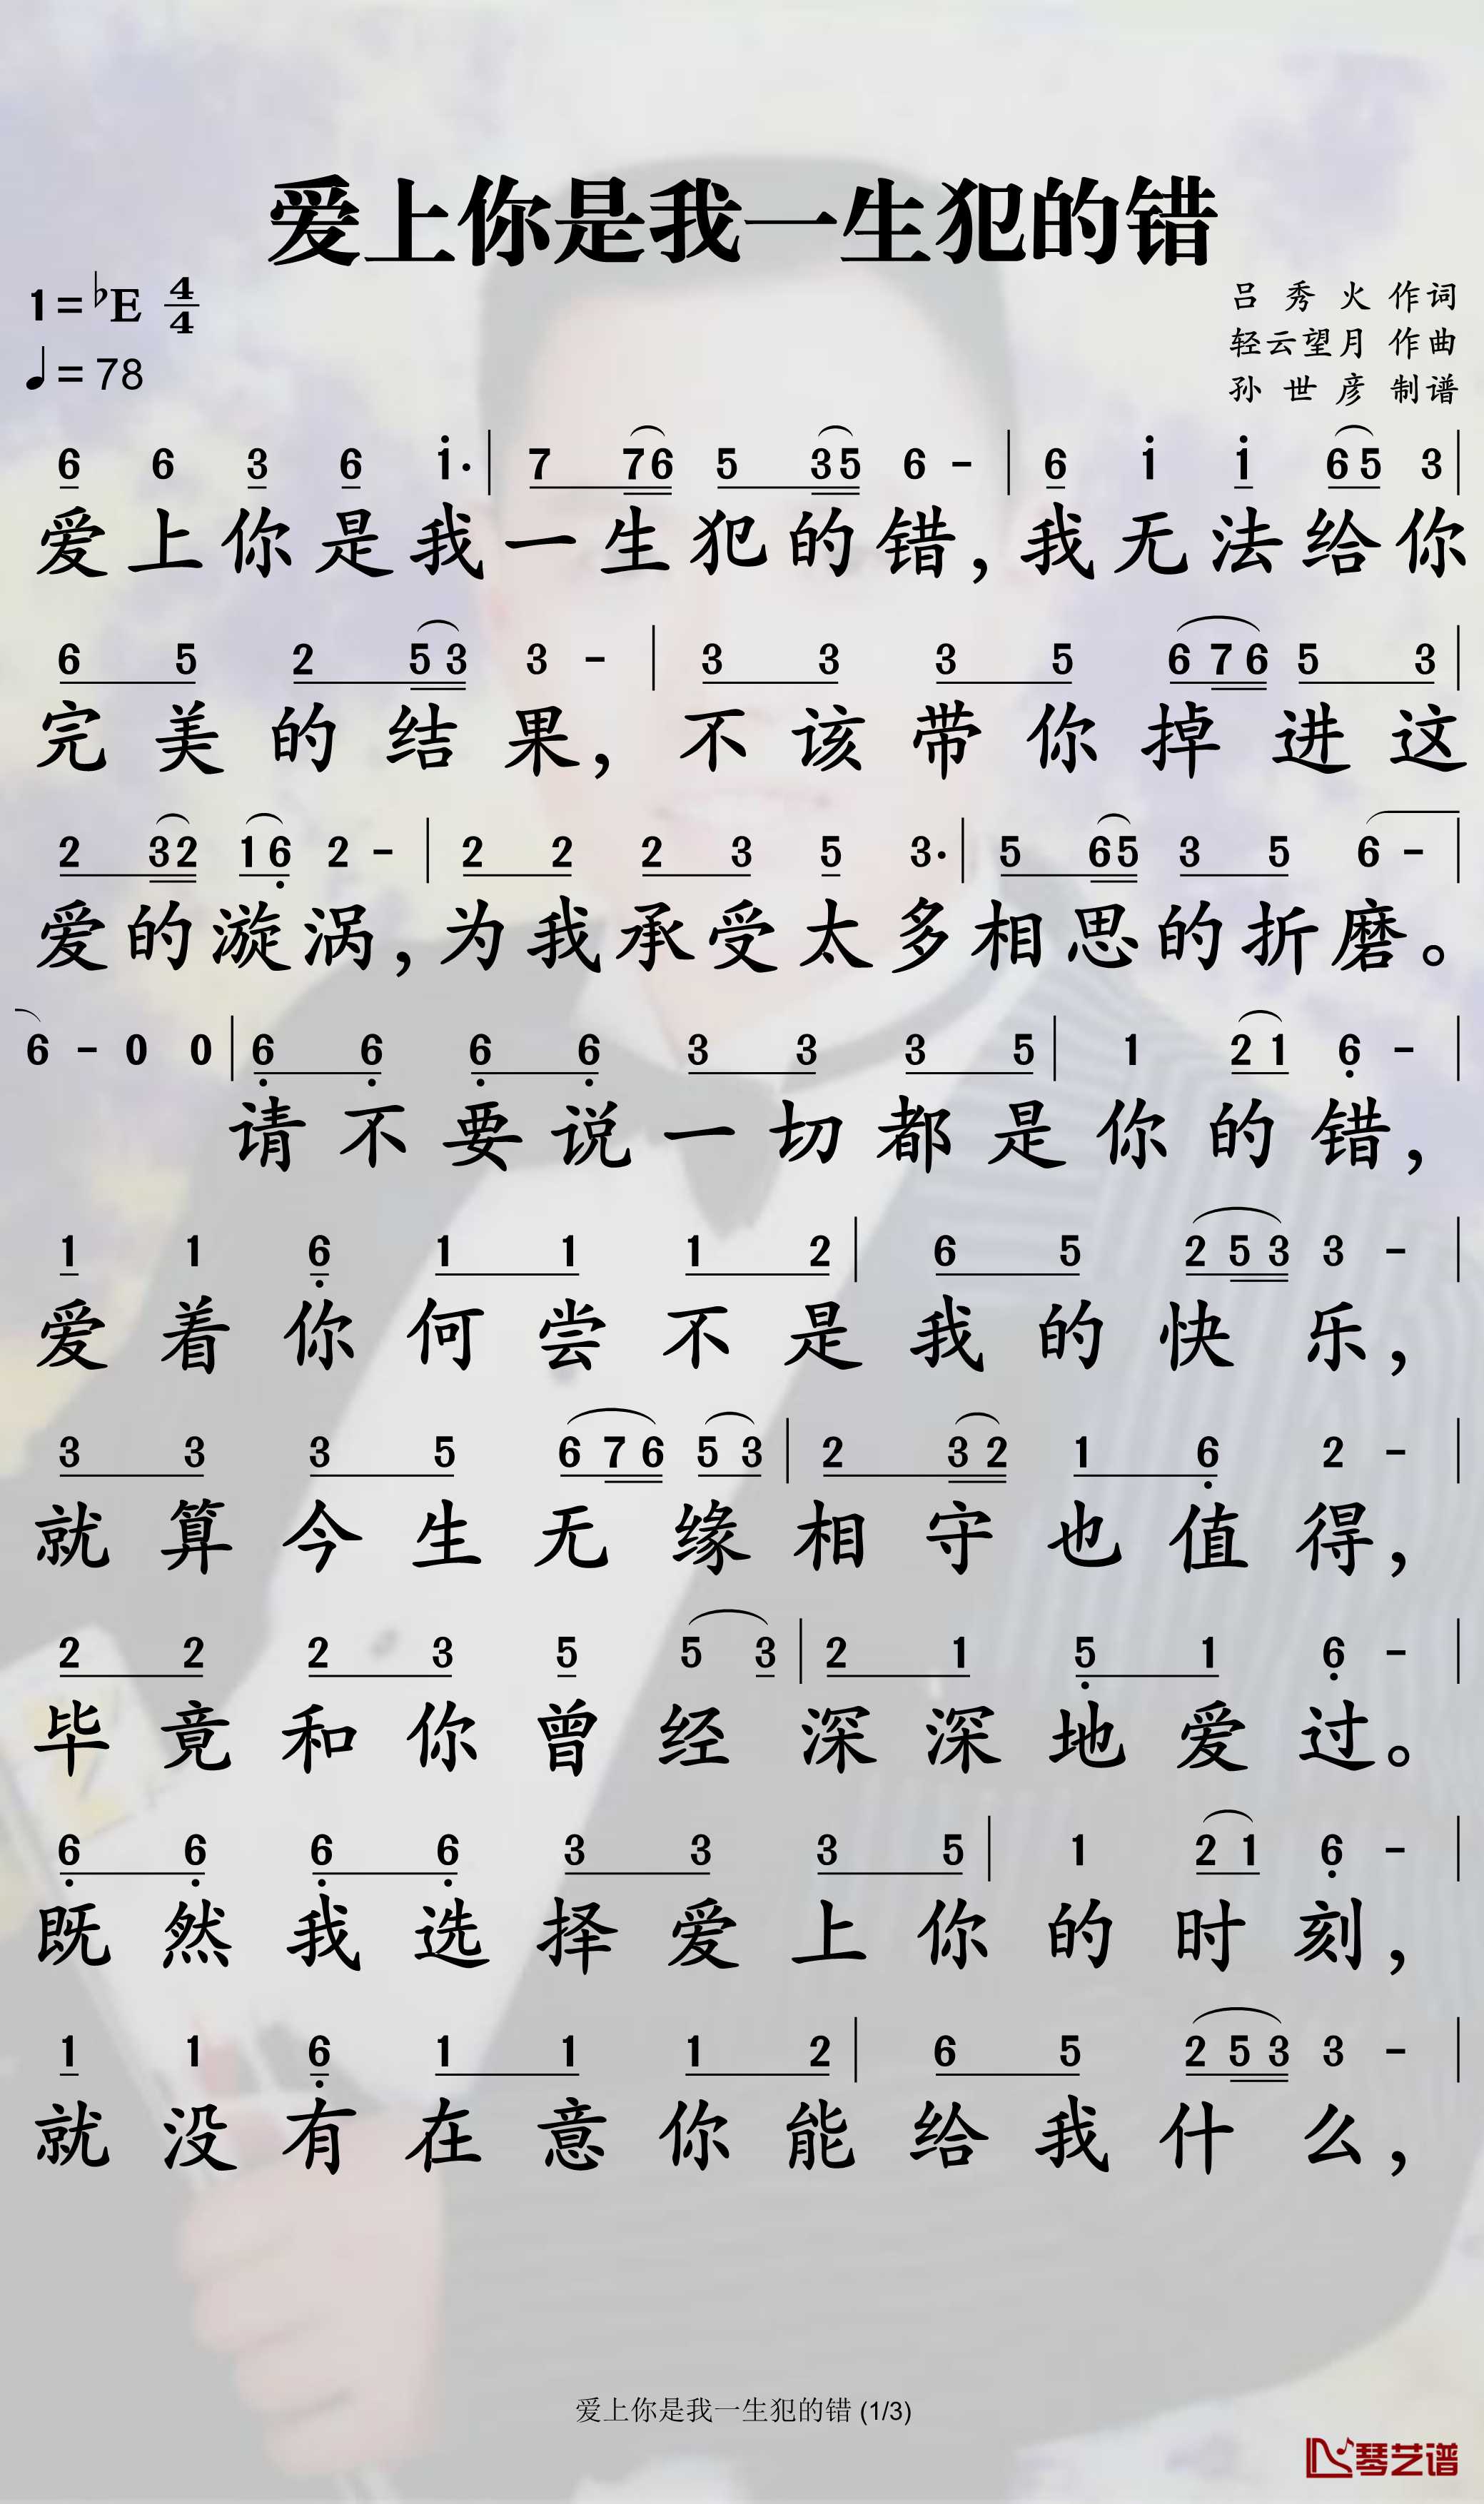 爱上你是我一生犯的错
1=♭E 4/4
♩=78
吕秀火 作词
轻云望月 作曲
孙世彦 制谱
6 6 3 6 i· | 7 76 5 35 6 - | 6 i i 65 3 |
爱上你是我一生犯的错，我无法给你
6 5 2 53 3 - | 3 3 3 5 676 5 3 |
完美的结果，不该带你掉进这
2 32 16 2 - | 2 2 2 3 5 3· | 5 65 3 5 6 - |
爱的漩涡，为我承受太多相思的折磨。
6 - 0 0 | 6 6 6 6 3 3 3 5 | 1 21 6 - |
请不要说一切都是你的错，
1 1 6 1 1 1 2 | 6 5 253 3 - |
爱着你何尝不是我的快乐，
3 3 3 5 676 53 | 2 32 1 6 2 - |
就算今生无缘相守也值得，
2 2 2 3 5 5 3 | 2 1 5 1 6 - |
毕竟和你曾经深深地爱过。
6 6 6 6 3 3 3 5 | 1 21 6 - |
既然我选择爱上你的时刻，
1 1 6 1 1 1 2 | 6 5 253 3 - |
就没有在意你能给我什么，
爱上你是我一生犯的错 (1/3)
琴艺谱